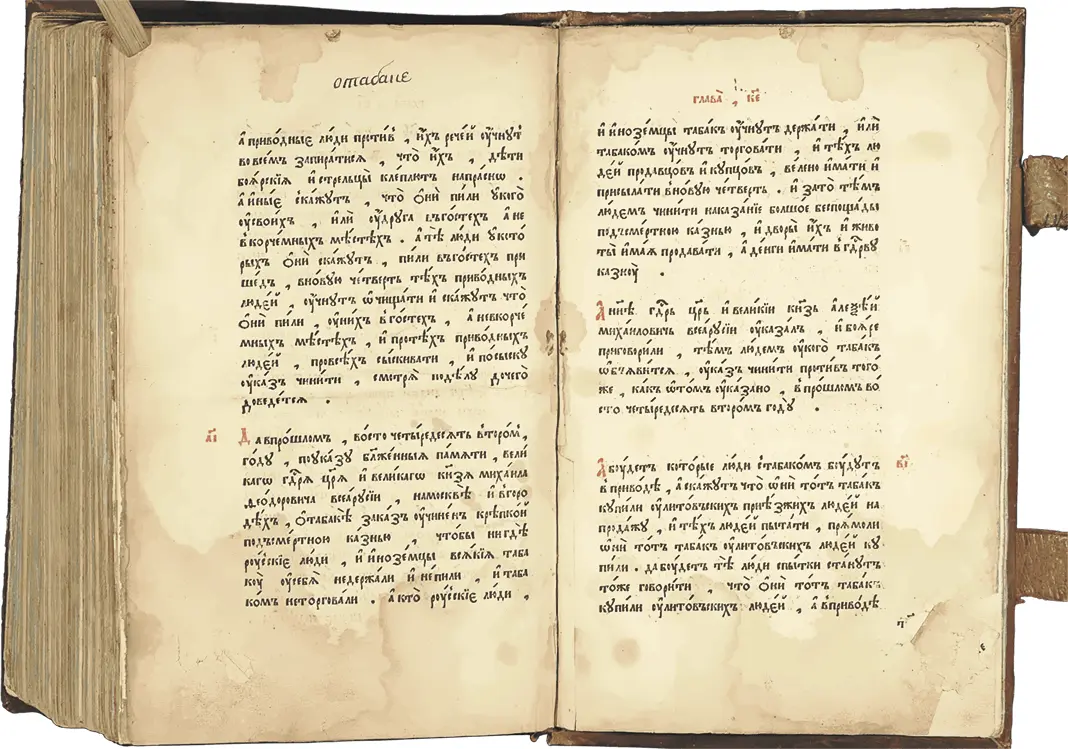 отабаке
А҆ приво́дныє лю́ди проти́в , и҆́хъ рече́й ᲂу҆чнꙋ́тъ
во все́мъ запира́тися , что̀ и҆́хъ , дѣ́ти
боя́рскїя и҆ стрельцы̀ клеплю́тъ напра́сно .
а҆ и҆ны́є ска́жꙋтъ , что̀ ѻ҆нѝ пи́ли ᲂу҆ кого̀
ᲂу҆ свои́хъ , и҆лѝ ᲂу҆ дрꙋ́га въ гостѣ́хъ а҆ не
в корче́мныхъ мѣ́стѣхъ . а҆ тѣ̀ лю́ди ᲂу҆ кото́
рыхъ ѻ҆нѝ ска́жꙋтъ , пи́ли въ гостѣ́хъ при
ше́дъ , в но́вꙋю че́тверть тѣ́хъ приво́дныхъ
люде́й , ᲂу҆чнꙋ́тъ ѡ҆чища́ти и҆ ска́жꙋтъ что̀
ѻ҆нѝ пи́ли , ᲂу҆ ни́хъ в гостѣ́хъ , а҆ не в корче́
мныхъ мѣ́стѣхъ , и҆ про тѣ́хъ приво́дныхъ
люде́й , про всѣ́хъ сы́скивати , и҆ по сы́скꙋ
ᲂу҆ка́зъ чини́ти , смотря̀ по дѣ́лꙋ до чего̀
доведе́тся .
а҃і Да в про́шломъ , во сто̀ четы́редесять второ́м ,
годꙋ̀ , по ᲂу҆ка́зꙋ бл҃же́нныя па́мяти , вели́
каго гд҃ря цр҃я̀ и҆ вели́кагѡ кн҃зя михаи́ла
ѳео́доровича всеа̀ рꙋсі́и , на москвѣ̀ и҆ в горо
дѣ́хъ , ѻ҆ табакѣ̀ зака́зъ ᲂу҆чине́н крѣ́пкой
под сме́ртною ка́знью , что́бы нигдѣ̀
рꙋ́сскїє лю́ди , и҆ и҆ноземцы вся́кїя таба
кꙋ̀ ᲂу҆ себя̀ не держа́ли и҆ не пи́ли , и҆ таба
ко́мъ не торгова́ли . а҆ кто̀ рꙋ́сскїє лю́ди ,
глава̀ , к҃е
и҆ и҆ноземцы таба́къ ᲂу҆чнꙋ́тъ держа́ти , и҆лѝ
табако́мъ ᲂу҆чнꙋ́тъ торгова́ти , и҆ тѣ́хъ лю
де́й продавцо́въ и҆ кꙋпцо́въ , ве́лено и҆ма́ти и҆
присыла́ти в но́вꙋю че́тверть . и҆ за то̀ тѣ́мъ
лю́демъ чини́ти наказа́нїе большо́е беспоща́ды
под сме́ртною ка́знью , и҆ дворы̀ и҆́хъ и҆ живо
ты̀ и҆ма́я продава́ти , а҆ де́нги и҆ма́ти в гд҃рвꙋ
казнꙋ̀ .
А ны́нѣ гд҃рь цр҃ь и҆ вели́кїи кн҃зь алеѯѣ́й
миха́иловичь всеа̀ рꙋсі́и ᲂу҆каза́лъ , и҆ боя́ре
приговори́ли , тѣ́мъ лю́демъ ᲂу҆ кого̀ таба́къ
ѡ҆бъя́вится , ᲂу҆ка́зъ чини́ти про́тивъ того̀
же , ка́къ ѡ҆ то́мъ ᲂу҆ка́зано , в про́шломъ во
сто̀ четы́редесять второ́мъ годꙋ̀ .
в҃і А бꙋ́детъ кото́рые лю́ди с табако́мъ бꙋ́дꙋтъ
в приво́дѣ , а҆ ска́жꙋтъ что̀ ѡ҆нѝ то́тъ таба́къ
кꙋпи́ли ᲂу҆ лито́въскихъ прїѣ́зжихъ люде́й на
прода́жꙋ , и҆ тѣ́хъ люде́й пыта́ти , пря́мо ли
ѡ҆нѝ то́тъ таба́къ ᲂу҆ лито́въскихъ люде́й кꙋ
пи́ли . да бꙋ́детъ тѣ̀ лю́ди с пы́тки ста́нꙋтъ
то́же говори́ти , что̀ ѻ҆нѝ то́тъ таба́къ
кꙋпи́ли ᲂу҆ лито́въскихъ люде́й , а҆ в приво́дѣ